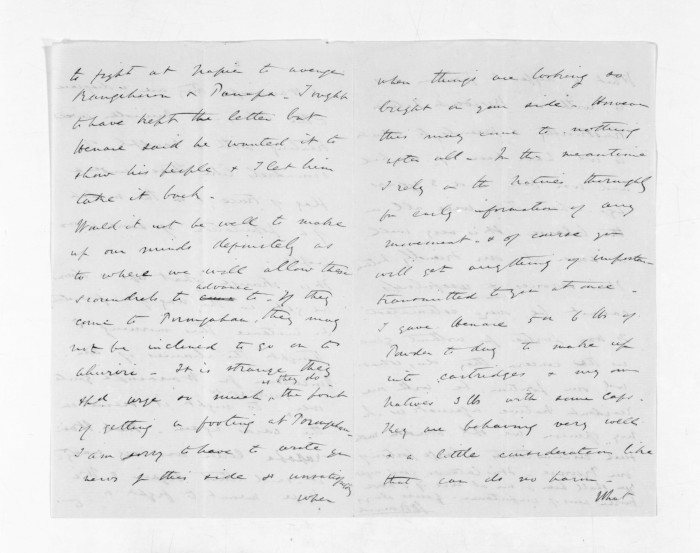 to fight at Napier to avenge
Rangihiroa & Panapa - I ought
to have kept the letter but
Henare said he wanted it to
show his people & I let him
take it back.
Would it not be well to make
up our minds definitely as
to where we will allow these
scoundrels to advance to - If they
come to Porongahau, they may
not be inclined to go on to
Ahuriri - It is strange they
shd urge so much, as they do the point
of getting a footing at Porongahau -
I am sorry to have to write you
news of this side so unsatisfactory
when
when things are looking so
bright on your side - However
this may come to nothing
after all - In the meantime
I rely on the Natives thoroughly
for early information of any
movement - & of course you
will get anything of importance
transmitted to you at once -
I gave Henare 5 or 6 lbs of
Powder to day to make up
into cartridges & my own
Natives 3 lbs with some caps -
They are behaving very well
& a little consideration like
that can do no harm -
What